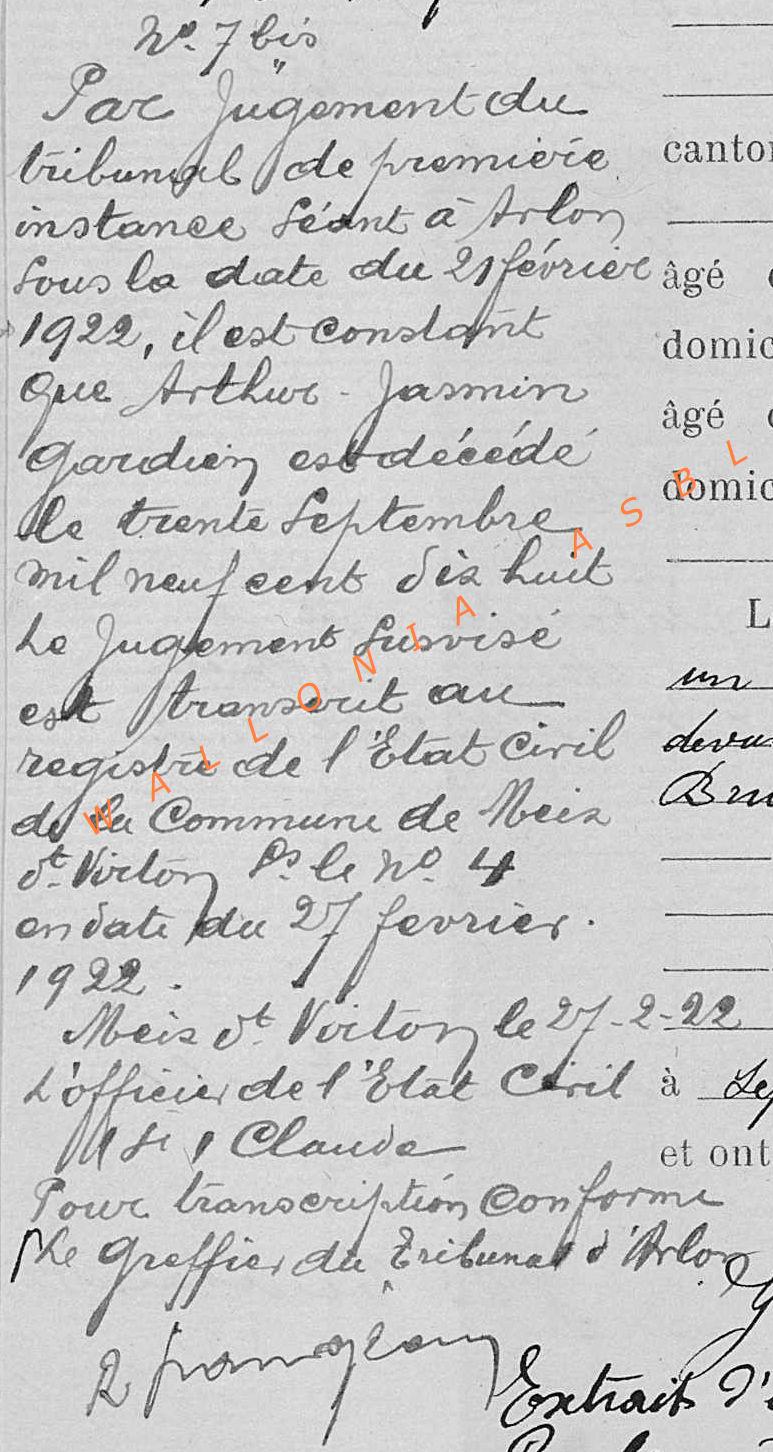 No. 7 bis
Par Jugement du
tribunal de première
instance séant à Arlon
sous la date du 21 février
1922, il est constant
que Arthur - Jasmin
Gardien est décédé
le trente Septembre
mil neuf cent dix huit
Le Jugement susvisé
est transcrit au
registre de l'Etat Civil
de la Commune de Meix
dt. Virton Ss le No. 4
en date du 27 fevrier.
1922.
Meix dt Virton le 27-2-22
L'officier de l'Etat Civil
(Sé) Claude
Pour transcription conforme
Le Greffier du Tribunal d'Arlon
WALLONIA ASBL
canton
âgé
domic
âgé
domic
L
un
deva
Bru
à
et ont
Extrait d'